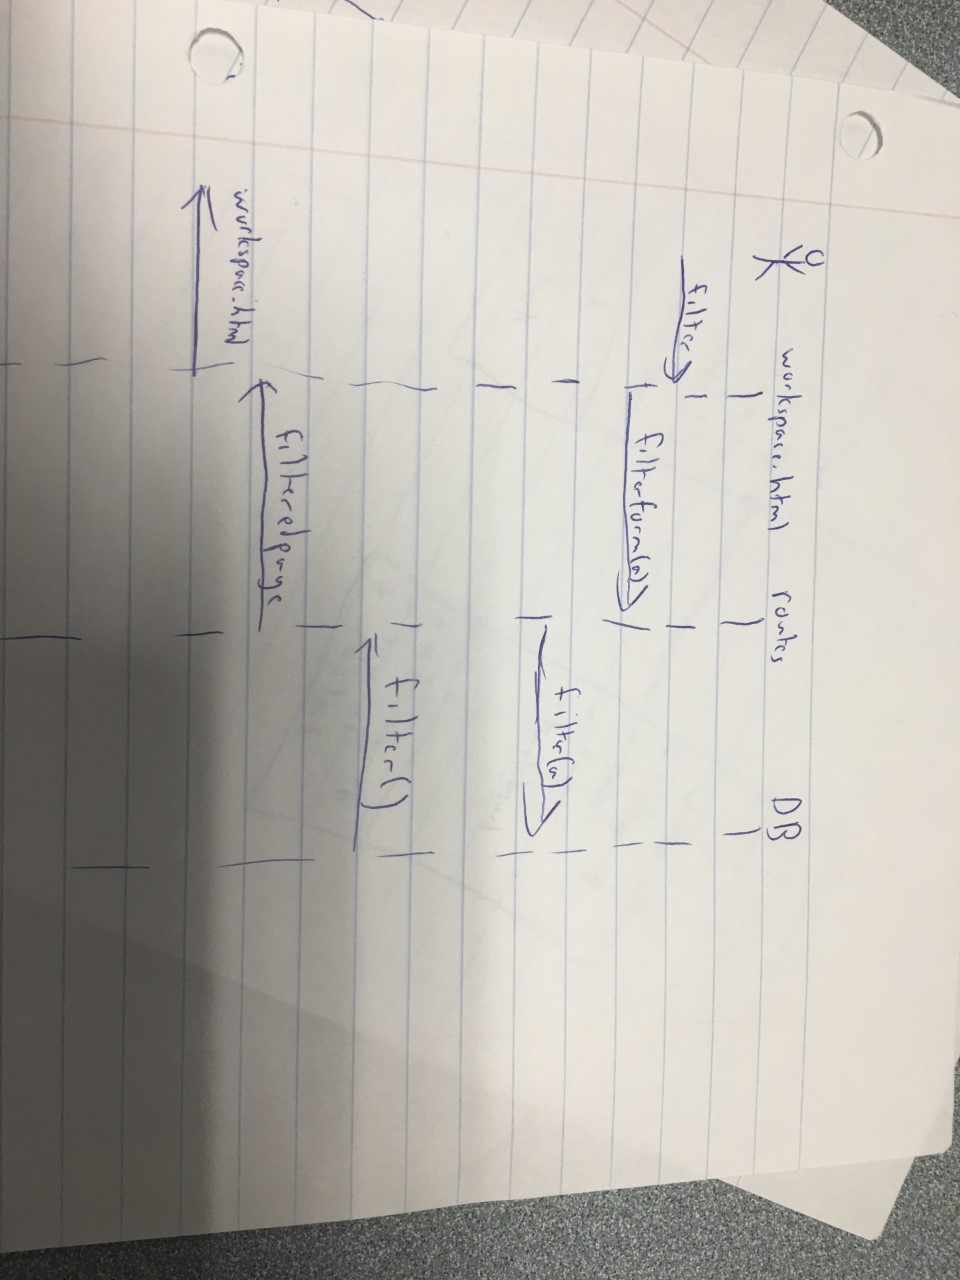 workspace.html routes DB
filter
filterform(a)
filter(a)
filter()
filteredpage
workspace.html